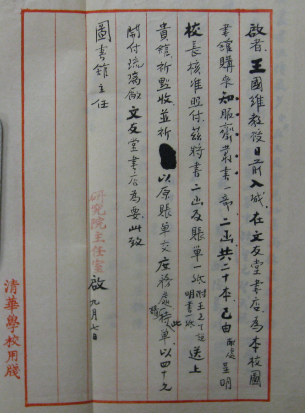 啟者王國維教授日前入城在文友堂書店為本校圖
書館購來知服齋叢書一部二函共二十本已由敝處呈明
校長核准照付茲將書二函及賬單一紙附王先生說明書一紙送上
貴館祈點收並祈以原賬單交庶務處特此
開付琉璃廠文友堂書店為要此致
圖書館主任
研究院主任室啟九月七日
清華學校用牋